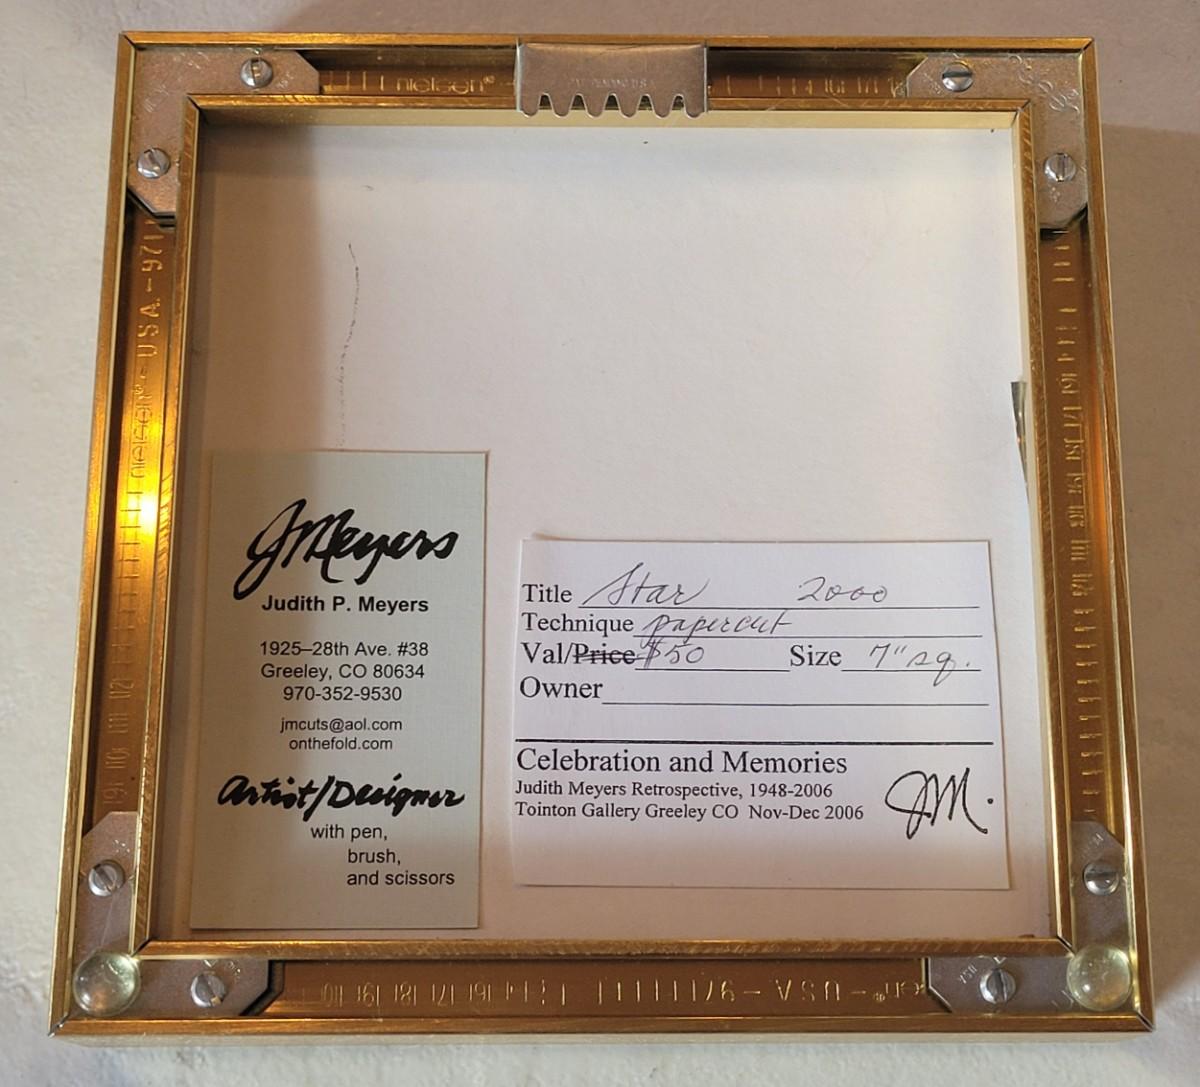 nielsen®
nielsen® - USA - 971
J Meyers
Judith P. Meyers
1925–28th Ave. #38
Greeley, CO 80634
970-352-9530
jmcuts@aol.com
onthefold.com
Artist/Designer
with pen,
brush,
and scissors
Title Star 2000
Technique papercut
Val/Price $50 Size 7" sq.
Owner
Celebration and Memories
Judith Meyers Retrospective, 1948-2006
Tointon Gallery Greeley CO Nov-Dec 2006
JM.
USA - 971